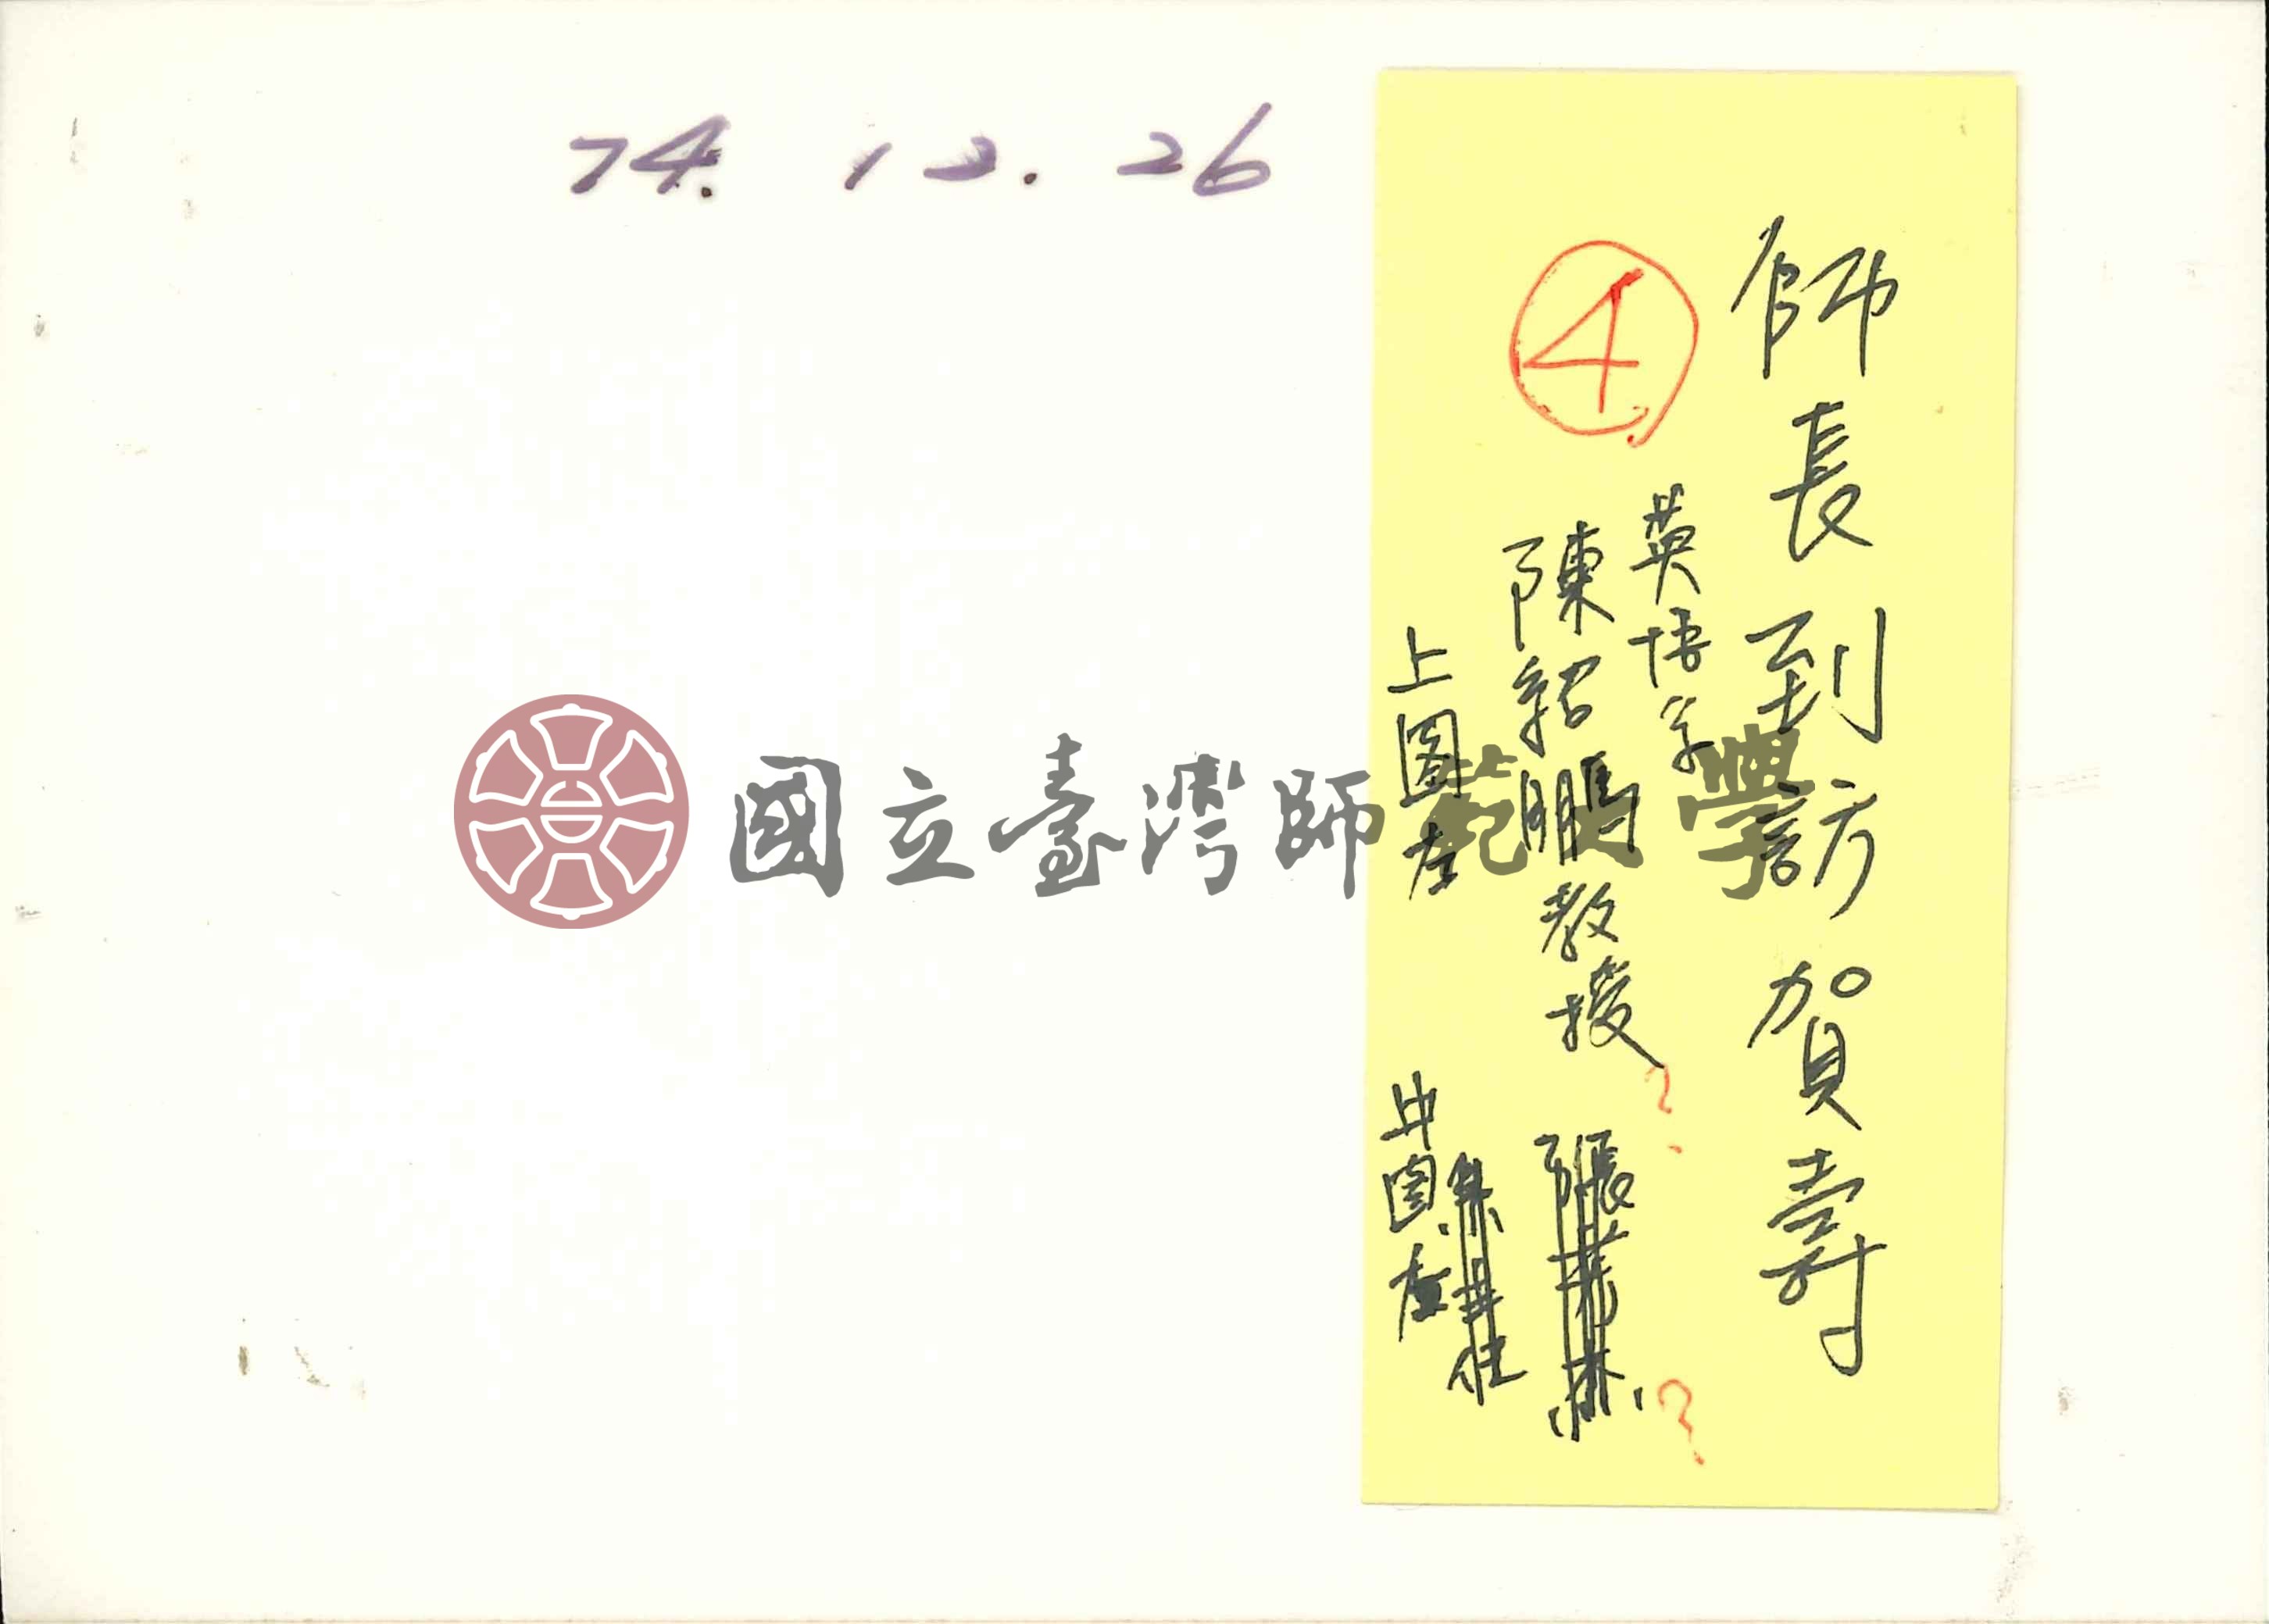 74. 12. 26
師長到訪賀壽
④
英語系
陳紹鵬教授 ? ?
上圖左
中圖左
國立臺灣師範大學